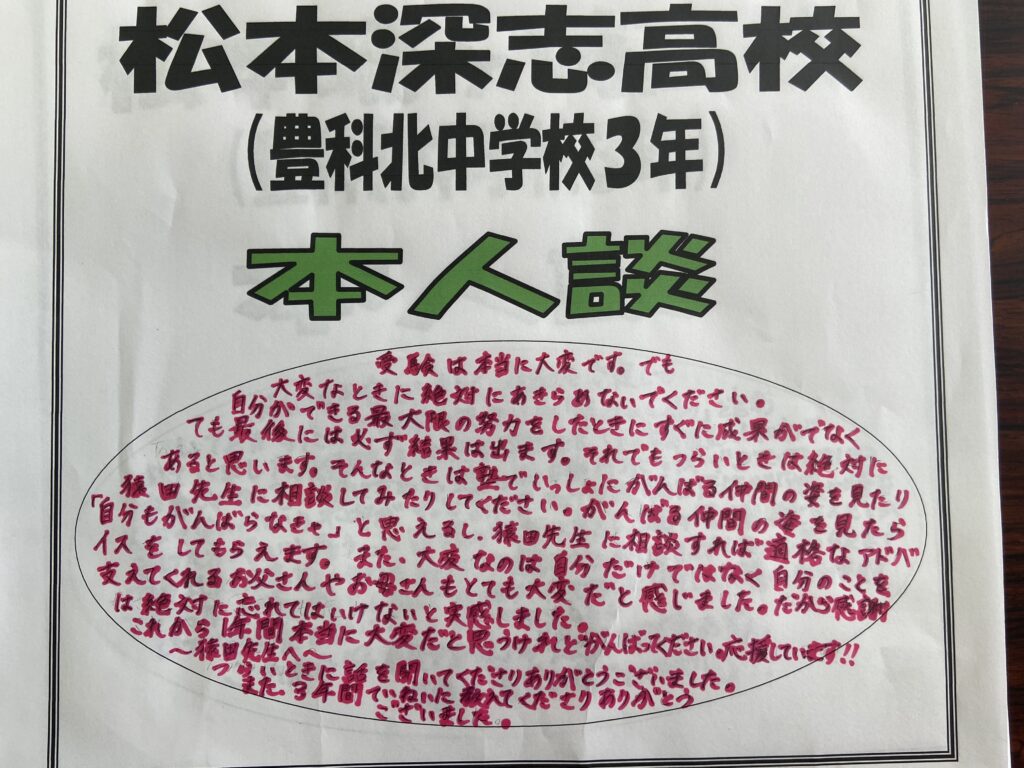 松本深志高校
（豊科北中学校３年）
本人談
受験は本当に大変です。でも
大変なときに絶対にあきらめないでください。
自分ができる最大限の努力をしたときにすぐに成果がでなく
ても最後には必ず結果は出ます。それでもつらいときは絶対に
あると思います。そんなときは塾でいっしょにがんばる仲間の姿を見たり
猿田先生に相談してみたりしてください。がんばる仲間の姿を見たら
「自分もがんばらなきゃ」と思えるし、猿田先生に相談すれば適格なアドバ
イスをしてもらえます。また、大変なのは自分だけではなく自分のことを
支えてくれるお父さんやお母さんもとても大変だと感じました。だから感謝
は絶対に忘れてはいけないと実感しました。
これから1年間本当に大変だと思うけれどがんばってください。応援しています!!
～猿田先生へ～
つらいときに話を聞いてくださりありがとうございました。
また、3年間ていねいに教えてくださりありがとう
ございました。